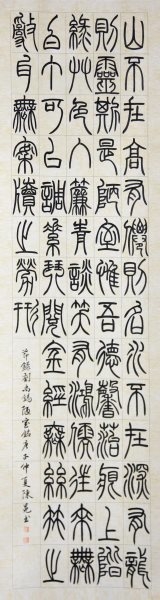 山不在高有僊則名水不在深有龍
則靈斯是陋室惟吾德馨苔痕上階
綠艸色入簾青談笑有鴻儒往來無
白丁可以調素琴閱金經無絲竹之
亂耳無案牘之勞形
節錄劉禹錫陋室銘庚子仲夏陳